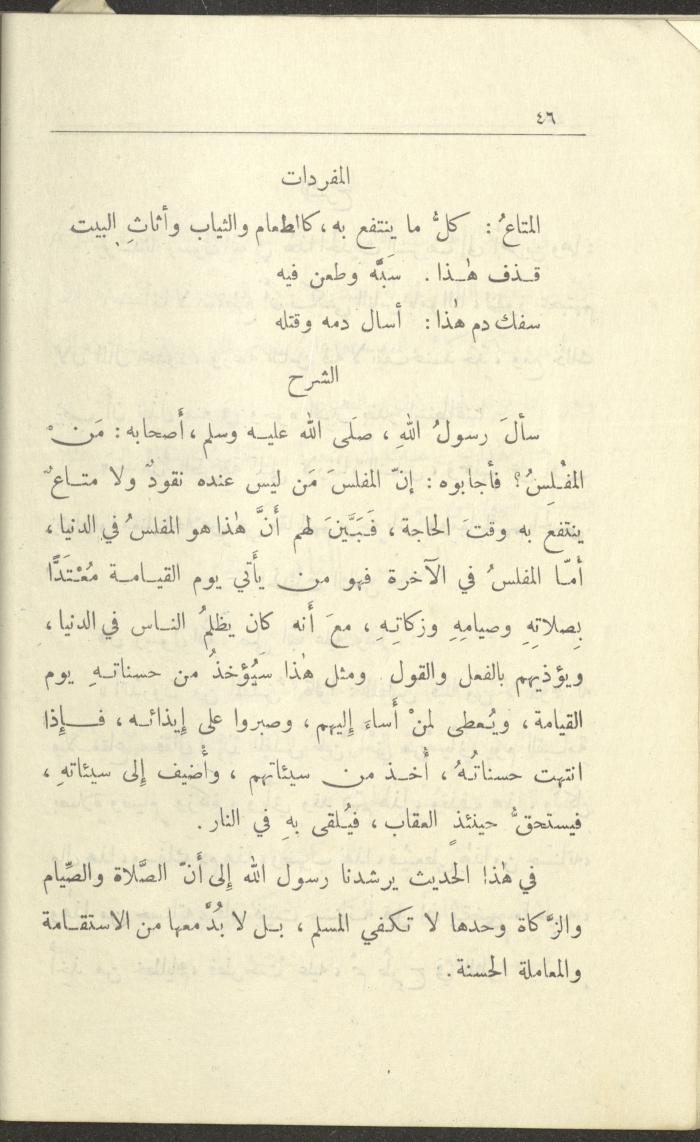 ٤٦
المفردات
المتاعُ : كلُّ ما ينتفع به ، كالطعام والثياب وأثاثِ البيت
قـذف هٰـذا . سَبَّه وطعن فيه
سفك دم هٰذا : أسال دمه وقتله
الشرح
سألَ رسولُ اللهِ ، صلَى الله عليـه وسلم ، أَصحابه : مَنْ
المفْلِسُ ؟ فأجابوه : إنّ المفلسَ مَن ليس عنده نقودٌ ولا متـاعٌ
ينتفع به وقتَ الحاجة ، فَبَيَّنَ لهم أَنَّ هٰذا هو المفلسُ في الدنيا ،
أَمّـا المفلسُ في الآخرة فهو من يأَتي يوم القيـامـة مُعْتَدًّا
بِصلاتهِ وصيامِهِ وزكاتِـهِ ، معَ أَنه كان يظلِمُ النـاس في الدنيا ،
ويؤذيهم بالفعل والقول . ومثل هٰذا سَيُؤخذُ من حسناتـهِ يوم
القيامة ، ويُعطى لمنْ أَساءَ إليهم ، وصبروا على إيذائـه ، فـإذا
انتهت حسناتُـهُ ، أُخـذ من سيئاتهم ، وأُضيف إلى سيئاتهِ ،
فيستحقُّ حينئذٍ العقاب ، فيُلقى بهِ في النار .
في هٰذا الحديث يرشدنا رسول الله إلى أَنّ الصَّلاة والصِّيام
والزَّكاة وحدها لا تكـفي المسلم ، بـل لا بُدَّ معها من الاستقـامة
والمعاملة الحسنة .